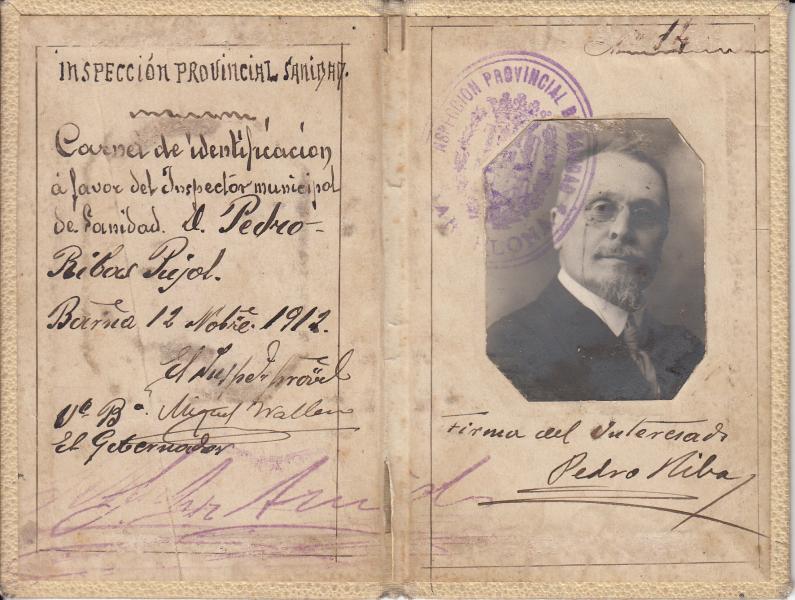 INSPECCIÓN PROVINCIAL SANIDAD.
Carné de identificacion
á favor del Inspector municipal
de Sanidad. D. Pedro
Ribas Pujol.
Barña 12 Nobre. 1912.
El Inspetr provial
Vº Bº Miguel
El Gobernador
14
INSPECCION PROVINCIAL D SANIDAD
Firma del Interesado
Pedro Riba